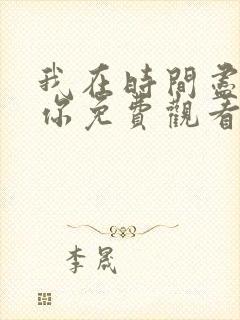 我在時間盡
你免費觀看
李晟